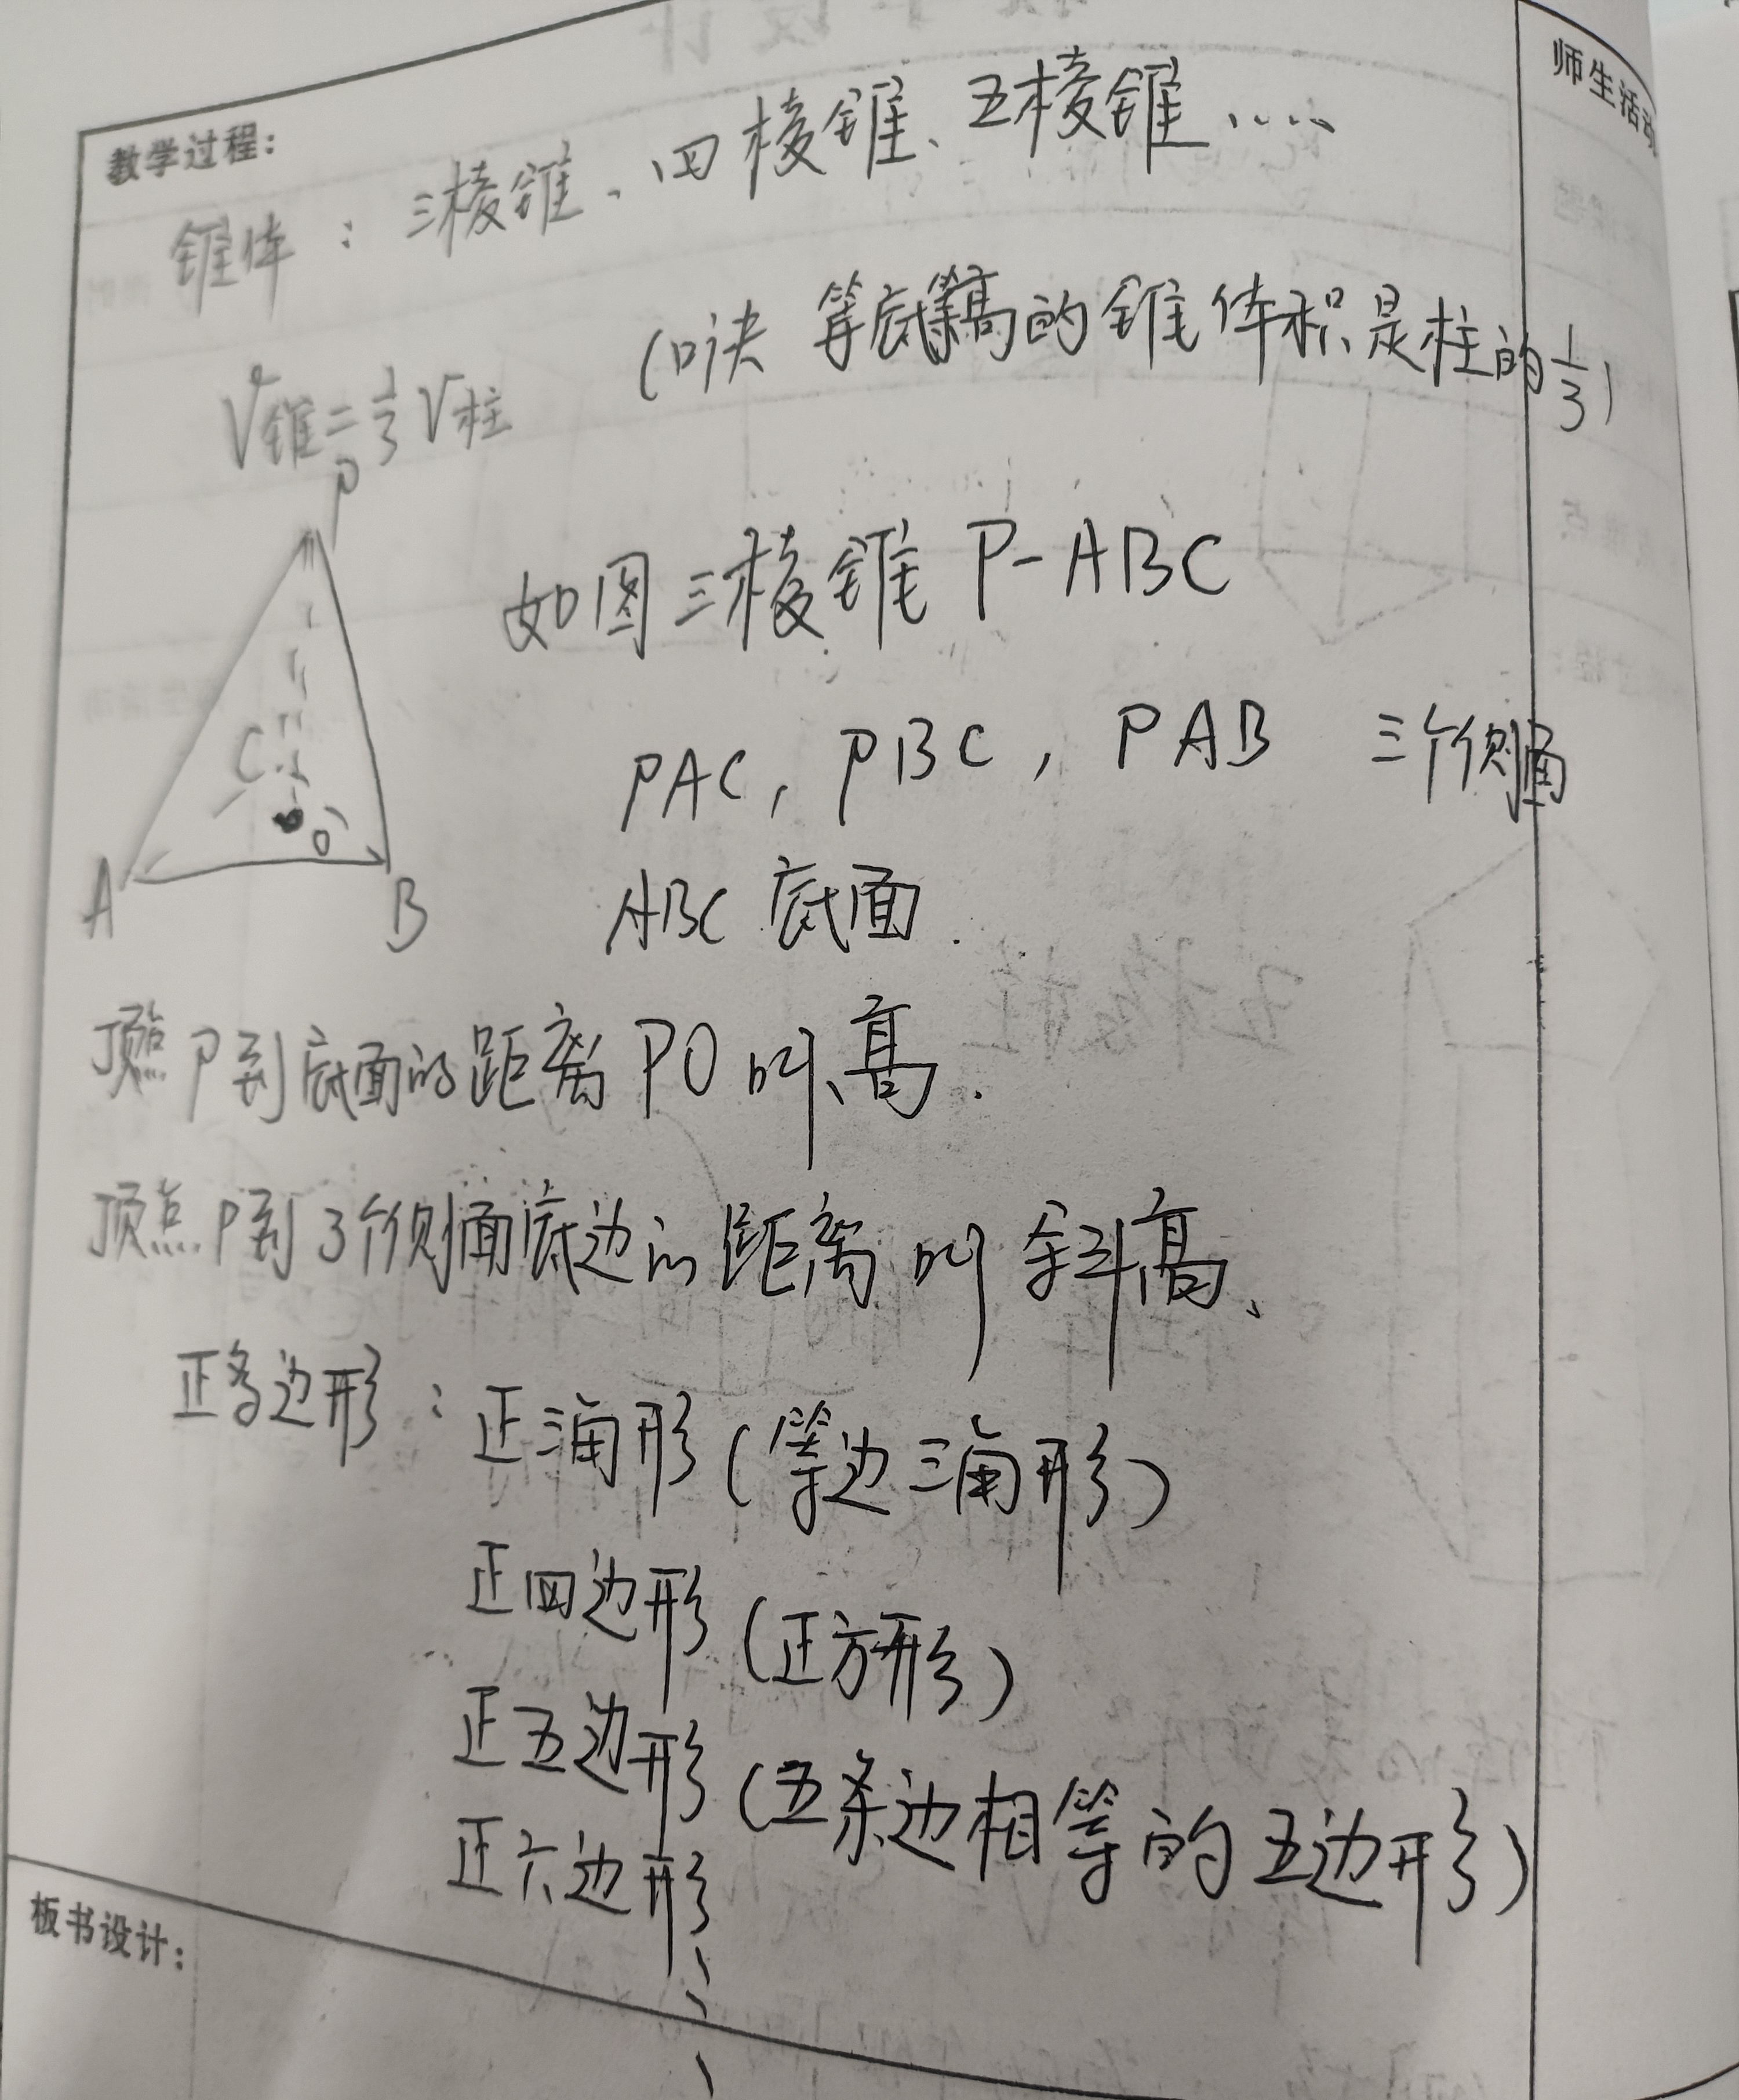 师生活动
教学过程：
锥体：三棱锥、四棱锥、五棱锥……
(口诀 等底等高的锥体积是柱的1/3)
V锥=1/3V柱
P
如图三棱锥P-ABC
C
O
A
B
PAC，PBC，PAB 三个侧面
ABC 底面.
顶点P到底面的距离PO叫高.
顶点P到3个侧面底边的距离叫斜高、
正多边形：正三角形(等边三角形)
正四边形(正方形)
正五边形(五条边相等的五边形)
正六边形
板书设计：